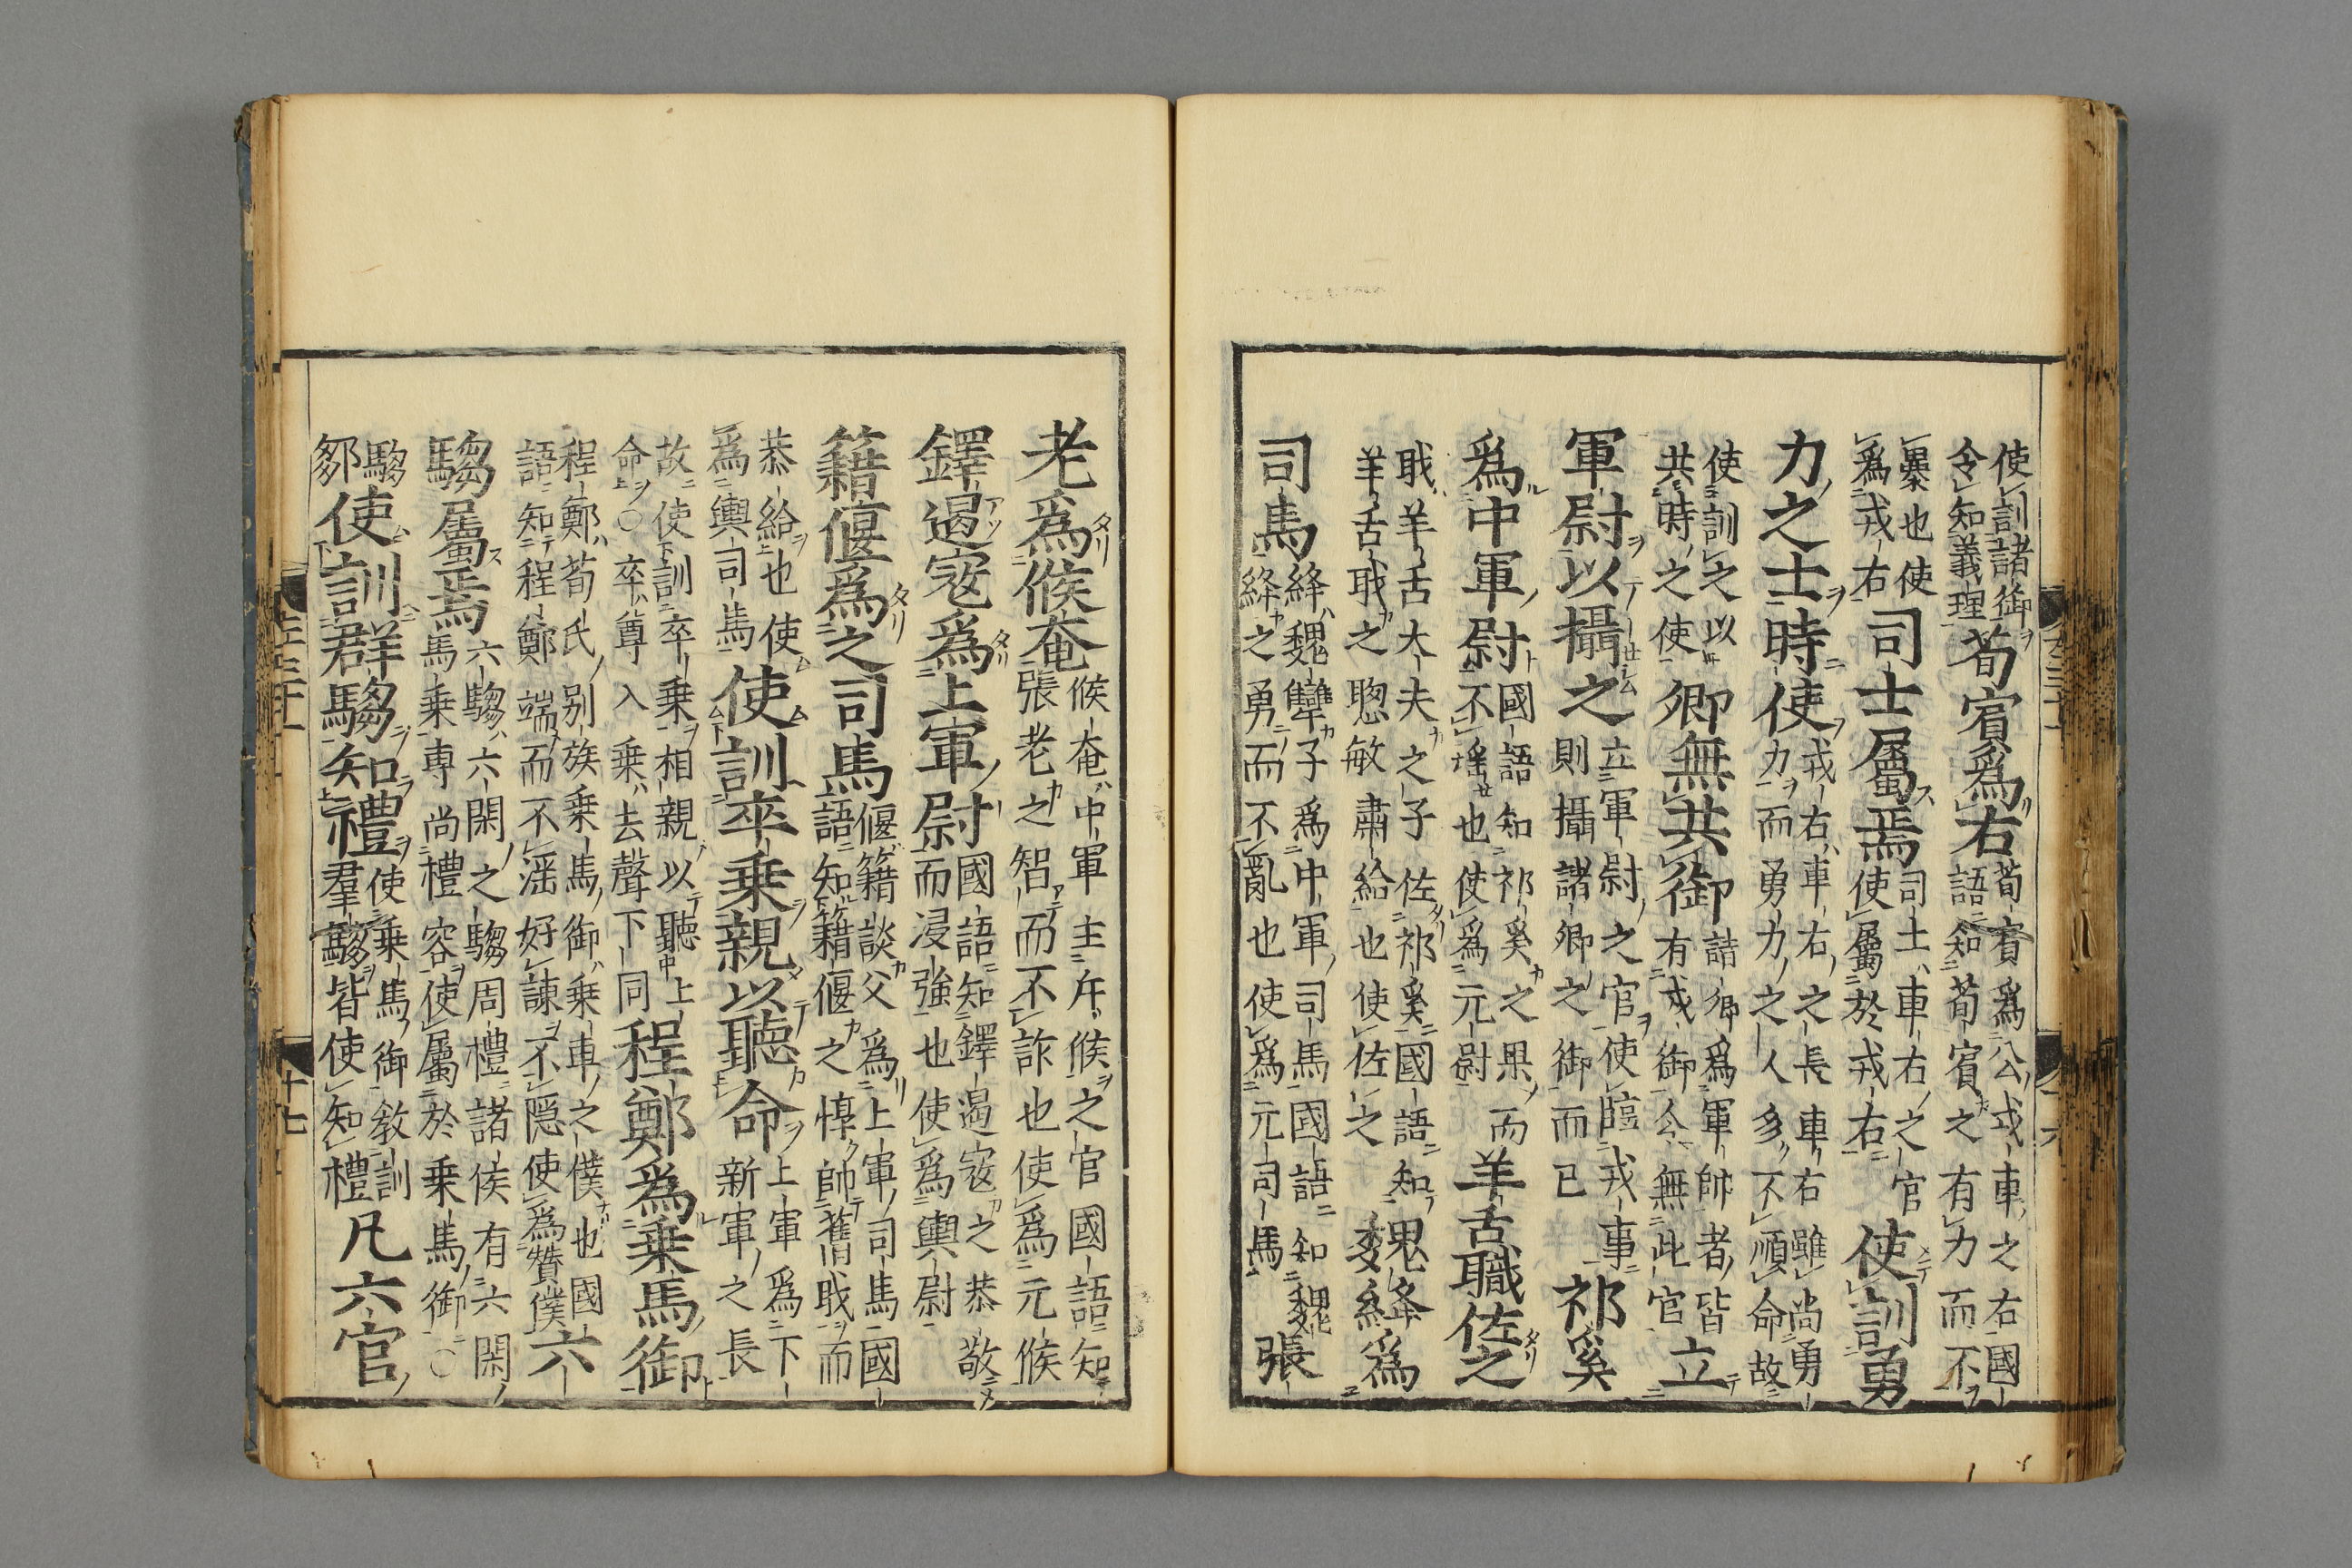 使訓諸御
令知義理
荀賓爲右
荀賓爲公戎車之右國
語知荀賓之有力而不
㬥也使
爲戎右
司士屬焉
司士車右之官
使屬於戎右
使訓勇
力之士時使
戎右車右之長車右雖尚勇
力而勇力之人多不順命故
使訓之以
共時之使
卿無共御
詰卿爲軍帥者皆
有戎御今無此官
立
軍尉以攝之
立軍尉之官使臨戎事
則攝諸卿之御而已
祁奚
爲中軍尉
國語知祁奚之果而
不滛也使爲元尉
羊舌職佐之
職羊舌大夫之子佐祁奚國語知
羊舌職之聰敏肅給也使佐之
魏絳爲
司馬
絳魏犫子爲中軍司馬國語知魏
絳之勇而不亂也使爲元司馬
張
老爲候奄
候奄中軍主斥候之官國語知
張老之智而不詐也使爲元候
鐸遏寇爲上軍尉
國語知鐸遏寇之恭敬
而浸強也使爲輿尉
籍偃爲之司馬
偃籍談父爲上軍司馬國
語知籍偃之惇帥舊職而
恭給也使
爲輿司馬
使訓卒乗親以聽命
上軍爲下
新軍之長
故使訓卒乗相親以聽上
命〇卒尊入乗去聲下同
程鄭爲乗馬御
程鄭荀氏別族乗馬御乗車之僕也國
語知程鄭端而不滛好諫不隠使爲贊僕
六
騶屬焉
六騶六閑之騶周禮諸侯有六閑
馬乗専尚禮容使屬於乗馬御〇
騶
鄒
使訓群騶知禮
使乗馬御敎訓
羣騶皆使知禮
凡六官
十七